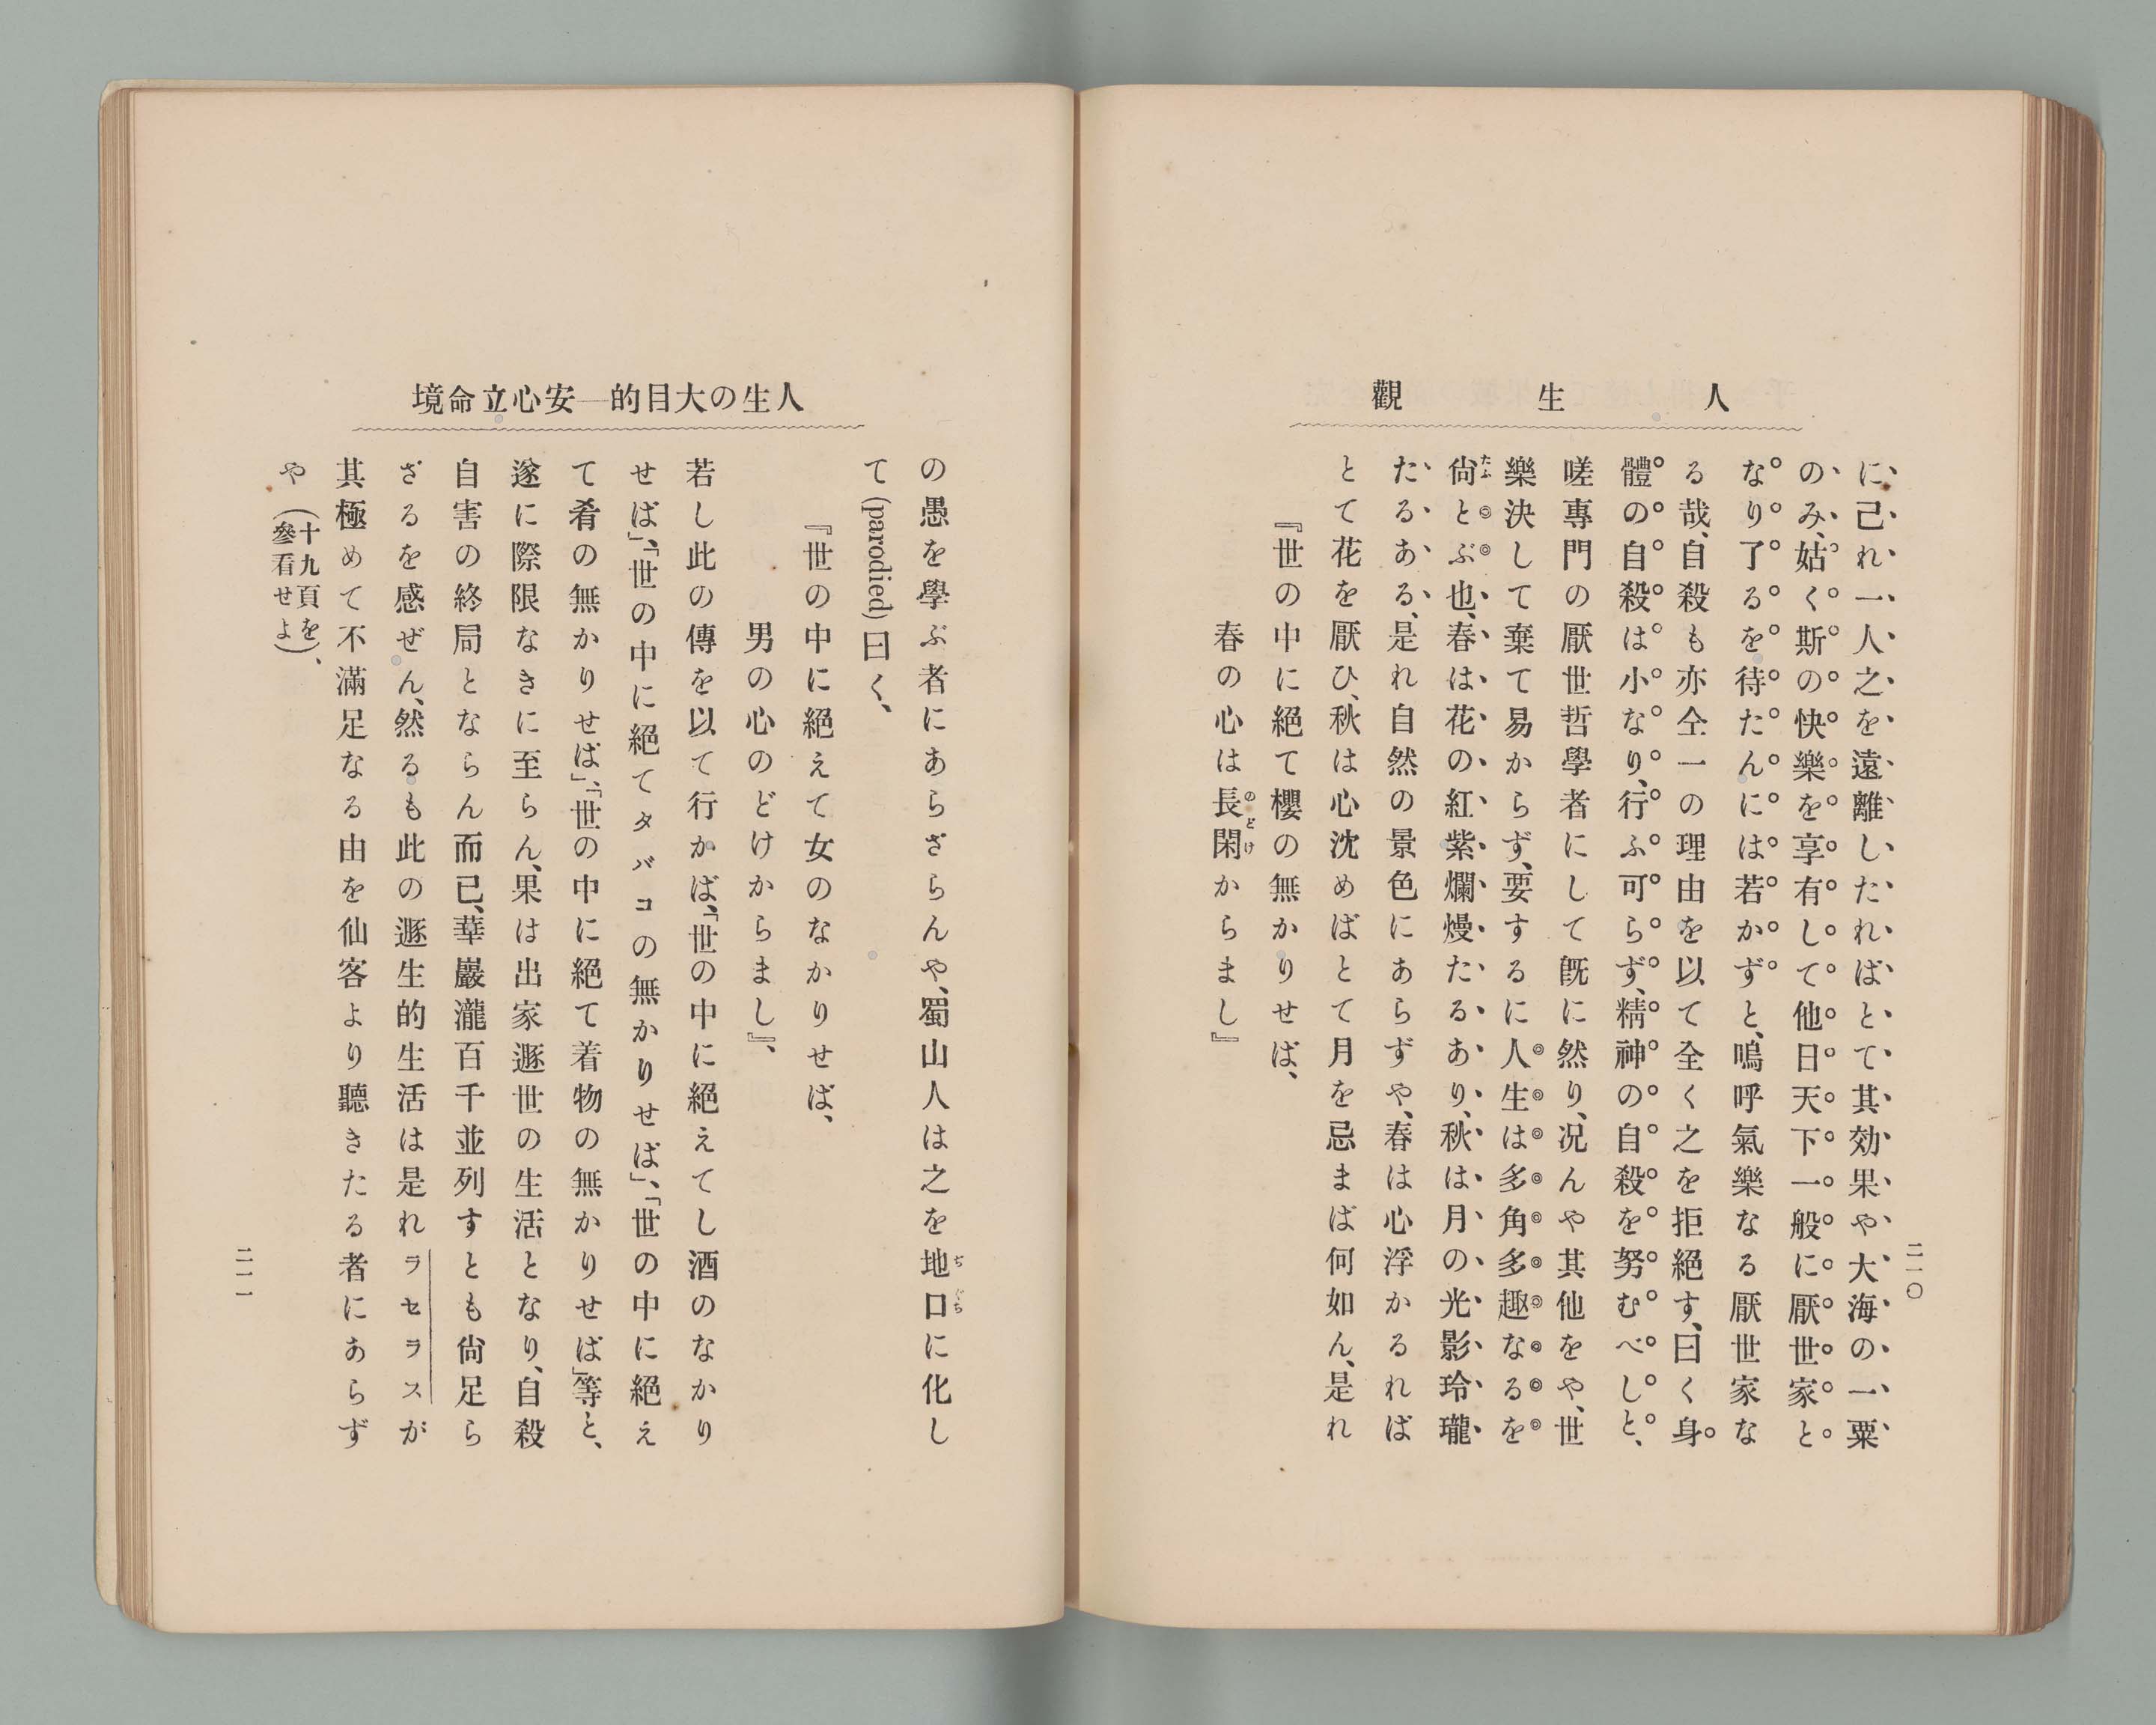 人生觀
二一〇
に己れ一人之を遠離したればとて其効果や大海の一粟
のみ、姑く斯の快樂を享有して他日天下一般に厭世家と
なり了るを待たんには若かずと、嗚呼氣樂なる厭世家な
る哉、自殺も亦仝一の理由を以て全く之を拒絕す、曰く身
體の自殺は小なり、行ふ可らず、精神の自殺を努むべしと、
嗟專門の厭世哲學者にして既に然り、况んや其他をや、世
樂決して棄て易からず、要するに人生は多角多趣なるを
尙とぶ也、春は花の紅紫爛熳たるあり、秋は月の光影玲瓏
たるある、是れ自然の景色にあらずや、春は心浮かるれば
とて花を厭ひ、秋は心沈めばとて月を忌まば何如ん、是れ
『世の中に絕て櫻の無かりせば、
春の心は長閑からまし』
人生の大目的―安心立命境
の愚を學ぶ者にあらざらんや、蜀山人は之を地口に化し
て(parodied)曰く、
『世の中に絕えて女のなかりせば、
男の心のどけからまし』、
若し此の傳を以て行かば、「世の中に絕えてし酒のなかり
せば」、「世の中に絕てタバコの無かりせば」、「世の中に絕え
て肴の無かりせば」、「世の中に絕て着物の無かりせば」等と、
遂に際限なきに至らん、果は出家遯世の生活となり、自殺
自害の終局とならん而已、華巖瀧百千並列すとも尙足ら
ざるを感ぜん、然るも此の遯生的生活は是れラセラスが
其極めて不滿足なる由を仙客より聽きたる者にあらず
や(十九頁を參看せよ)、
二一一